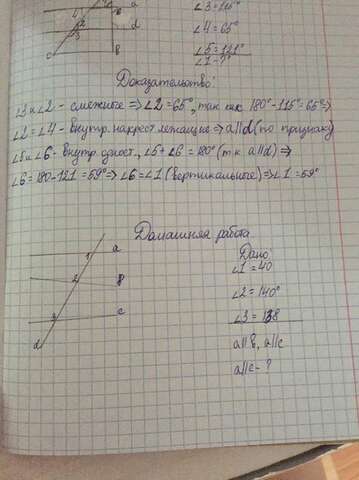 a
∠3=115°
4
d
∠4=65°
∠5=121°
c
B
∠1-?
Доказательство:
∠3 и ∠2 - смежные => ∠2=65°, так как 180°-115°=65° =>
∠2=∠4 - внутр. накрест лежащие => a||d (по признаку)
∠5 и ∠6 - внутр. одност., ∠5+∠6=180° (т.к. a||d) =>
∠6=180-121=59° => ∠6=∠1 (вертикальные) => ∠1=59°
Домашняя работа
Дано
a
1
∠1=40
2
B
∠2=140°
3
c
∠3=138
d
a||B, a||c
a||c-?